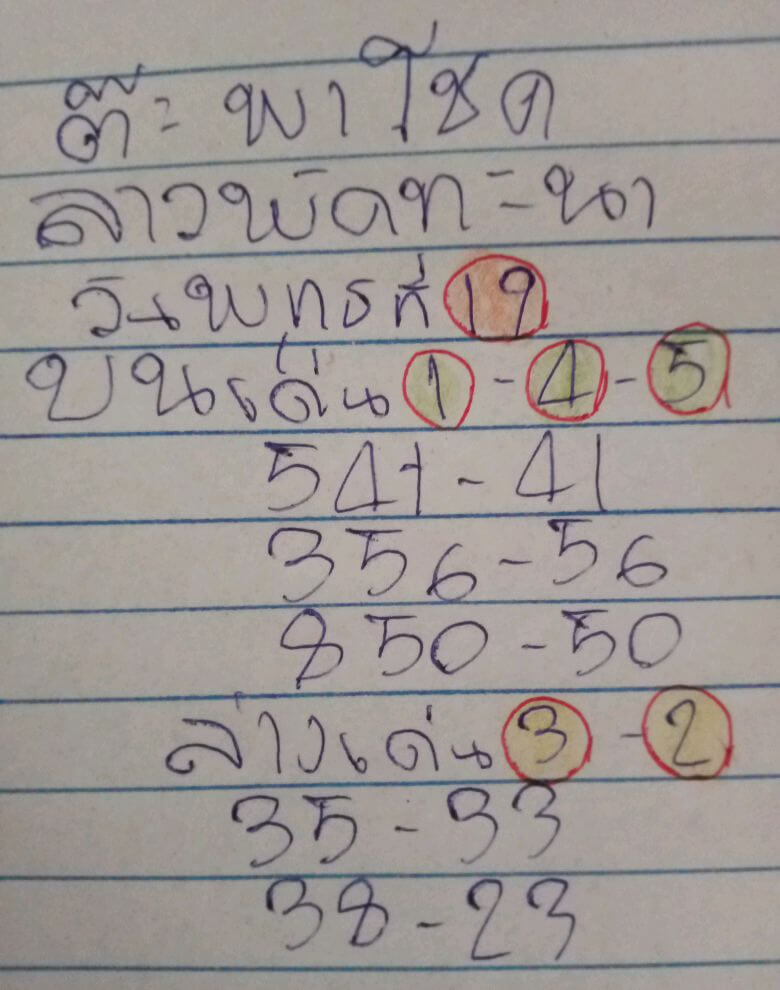 ต๊ะ พาโชค
ลาวพัดทะนา
วันพุทธที่ 19
บนเด่น 1 - 4 - 5
541 - 41
356 - 56
850 - 50
ล่างเด่น 3 - 2
35 - 33
38 - 23